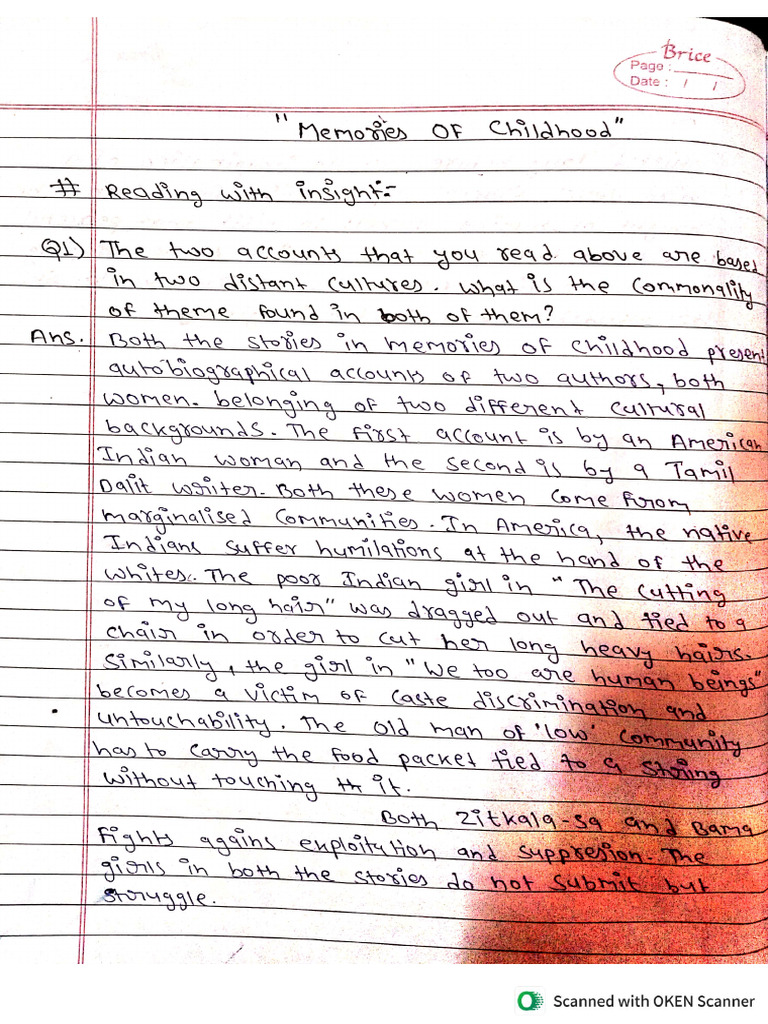 Brice
Page :
Date : / /
"Memories Of Childhood"
# Reading with insight:-
Q1) The two accounts that you read above are based
in two distant cultures. What is the commonality
of theme found in both of them?
Ans. Both the stories in memories of childhood present
autobiographical accounts of two authors, both
women. belonging of two different cultural
backgrounds. The first account is by an American
Indian woman and the second is by a Tamil
Dalit writer. Both these women come from
marginalised communities. In America, the native
Indians suffer humilations at the hand of the
whites. The poor Indian girl in "The cutting
of my long hair" was dragged out and tied to a
chair in order to cut her long heavy hairs.
Similarly, the girl in "We too are human beings"
becomes a victim of caste discrimination and
untouchability. The old man of 'low' community
has to carry the food packet tied to a string
without touching it.
Both Zitkala-Sa and Bama
Fights agains exploitation and suppresion. The
girls in both the stories do not submit but
struggle.
Scanned with OKEN Scanner